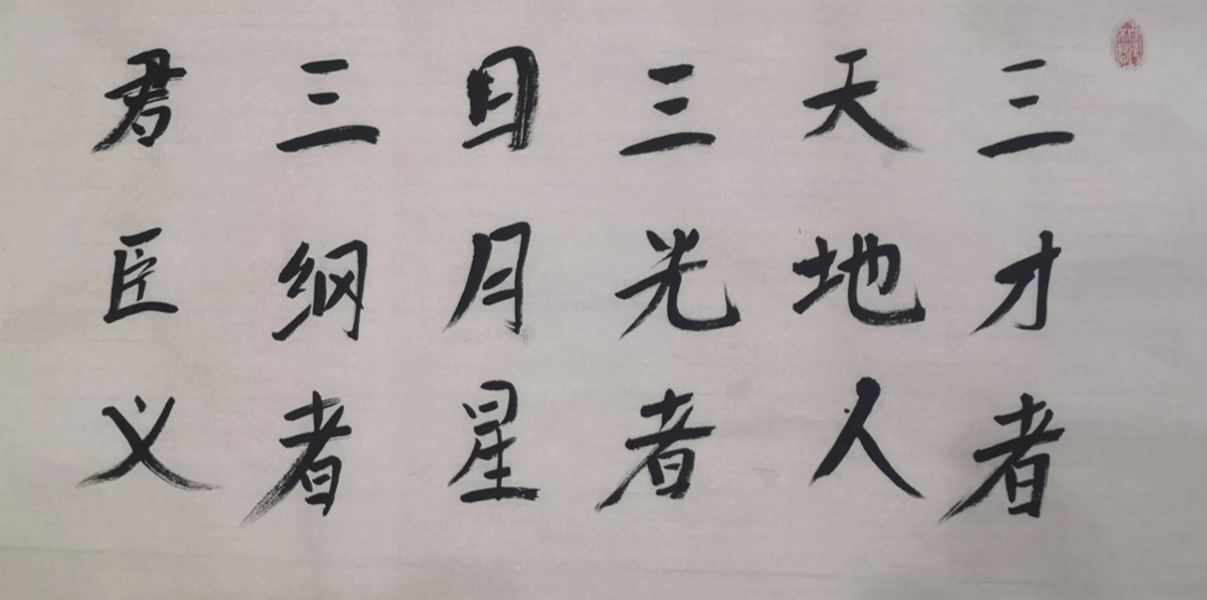 三才者
天地人
三光者
日月星
三纲者
君臣义